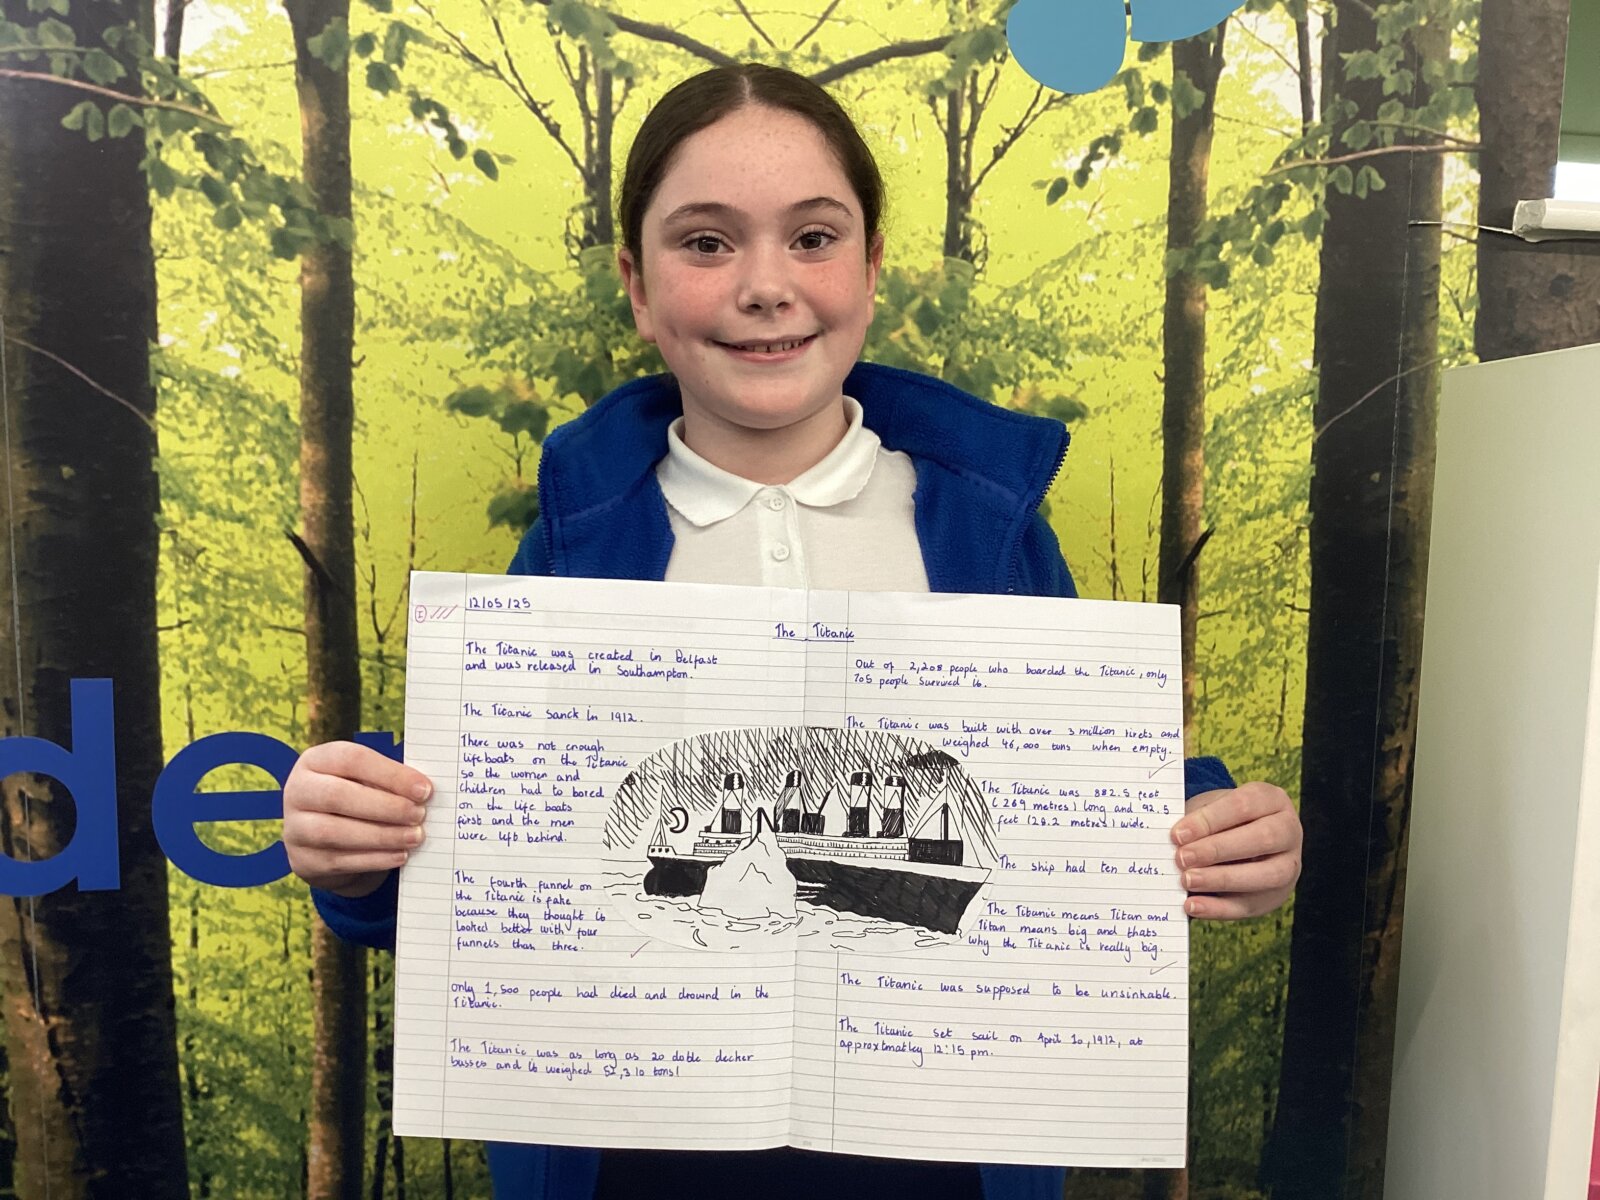 12/05/25
The Titanic
The Titanic was created in Belfast
and was released in Southampton.
The Titanic sanck in 1912.
There was not enough
lifeboats on the Titanic
so the women and
children had to bored
on the life boats
first and the men
were left behind.
The fourth funnel on
the Titanic is fake
because they thought it
looked better with four
funnels than three.
only 1,500 people had died and drownd in the
Titanic.
The Titanic was as long as 20 doble decher
busses and it weighed 52,310 tons!
Out of 2,208 people who boarded the Titanic, only
705 people survived it.
The Titanic was built with over 3 million rivets and
weighed 46,000 tuns when empty.
The Titanic was 882.5 feet
(269 metres) long and 92.5
feet (28.2 metres) wide.
The ship had ten decks.
The Titanic means Titan and
Titan means big and thats
why the Titanic is really big.
The Titanic was supposed to be unsinkable.
The Titanic set sail on April 10, 1912, at
approxtmatley 12:15 pm.
de